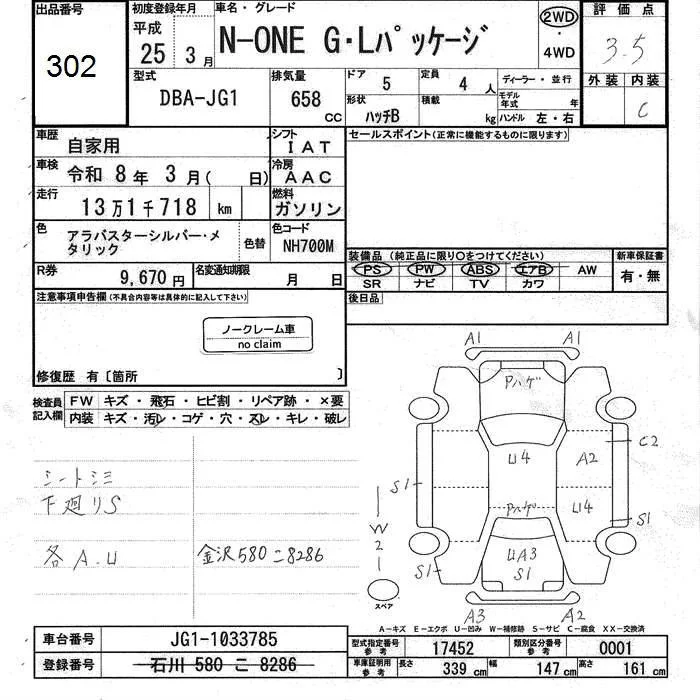 出品番号
302
初度登録年月
平成
25 3月
車名・グレード
N-ONE G・Lパッケージ
2WD
・
4WD
評価点
3.5
外装 内装
C
型式
DBA-JG1
排気量
658
CC
ドア
5
定員
4 人
ディーラー・並行
形状
ハッチB
積載
kg
モデル年式 年
ハンドル 左・右
車歴
自家用
シフト
IAT
セールスポイント(正常に機能するものに限ります)
車検
令和 8年 3月( 日)
冷房
AAC
走行
13万1千718 km
燃料
ガソリン
色
アラバスターシルバー・メ
タリック
色替
色コード
NH700M
装備品(純正品に限り〇をつけてください)
PS PW ABS エアB AW
SR ナビ TV カワ
新車保証書
有・無
R券
9,670円
名変通知期限
月 日
後日品
注意事項申告欄(不具合内容等は具体的に記入して下さい)
ノークレーム車
no claim
修復歴 有〔箇所 〕
検査員
記入欄
FW キズ・飛石・ヒビ割・リペア跡・×要
内装 キズ・汚レ・コゲ・穴・スレ・キレ・破レ
シートシミ
下廻りS
各A.U
金沢580こ8286
A1 A1
Pハゲ
C2
U4 A2
S1
Pハゲ U4
S1
W2
UA3
S1
S1
スペア
A3 A2
A-キズ E-エクボ U-凹み W-補修跡 S-サビ C-腐食 XX-交換済
車台番号
JG1-1033785
登録番号
石川 580 こ 8286
型式指定番号
参考
17452
類別区分番号
参考
0001
車庫証明用
参考
長さ
339 cm
幅
147 cm
高さ
161 cm